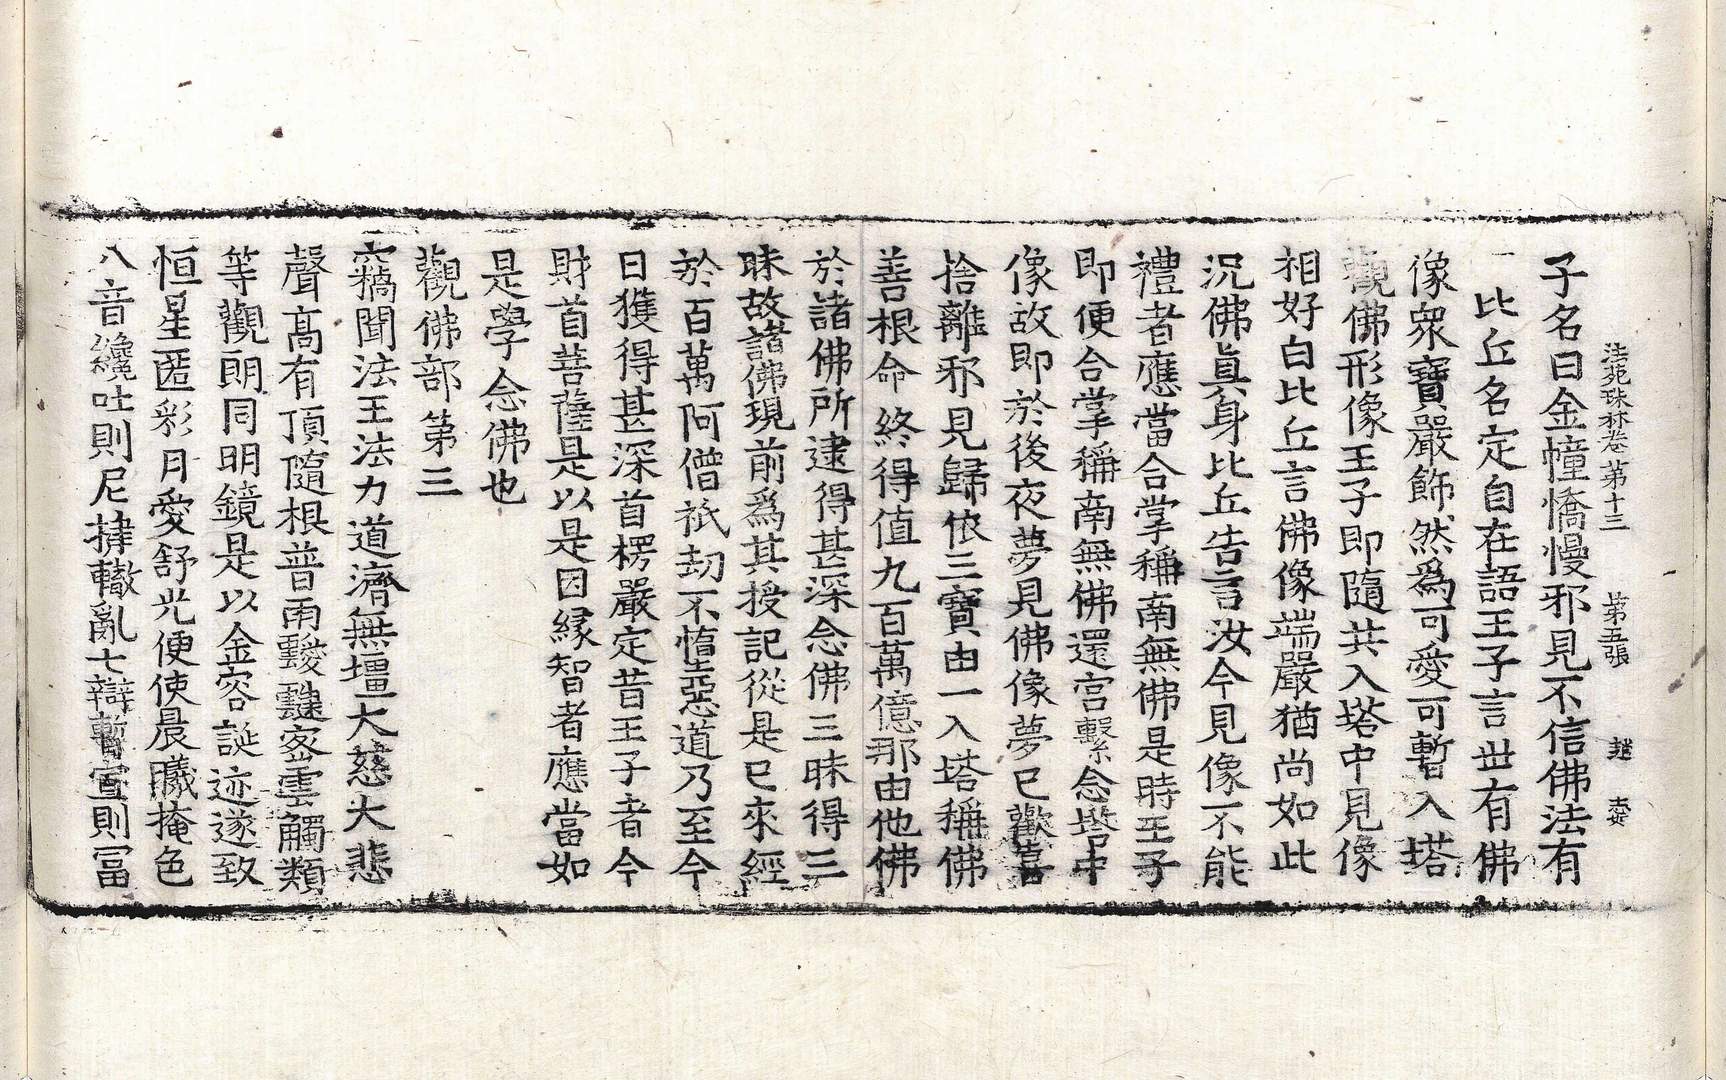 法苑珠林卷第十三 第五張 趙
子名曰金幢憍慢邪見不信佛法有
一比丘名定自在語王子言世有佛
像衆寶嚴飾然爲可愛可暫入塔
觀佛形像王子即隨共入塔中見像
相好白比丘言佛像端嚴猶尚如此
況佛眞身比丘告言汝今見像不能
禮者應當合掌稱南無佛是時王子
即便合掌稱南無佛還宮繫念塔中
像故即於後夜夢見佛像夢已歡喜
捨離邪見歸依三寶由一入塔稱佛
善根命終得值九百萬億那由他佛
於諸佛所逮得甚深念佛三昧得三
昧故諸佛現前爲其授記從是已來經
於百萬阿僧祇劫不憜惡道乃至今
日獲得甚深首楞嚴定昔王子者今
財首菩薩是以是因縁智者應當如
是學念佛也
觀佛部第三
竊聞法王法力道濟無壃大慈大悲
聲高有頂隨根普雨靉靆密雲觸類
等觀朗同明鏡是以金容誕迹遂致
恒星匿彩月愛舒光便使晨曦掩色
八音纔吐則尼揵轍亂七辯暫宣則冨